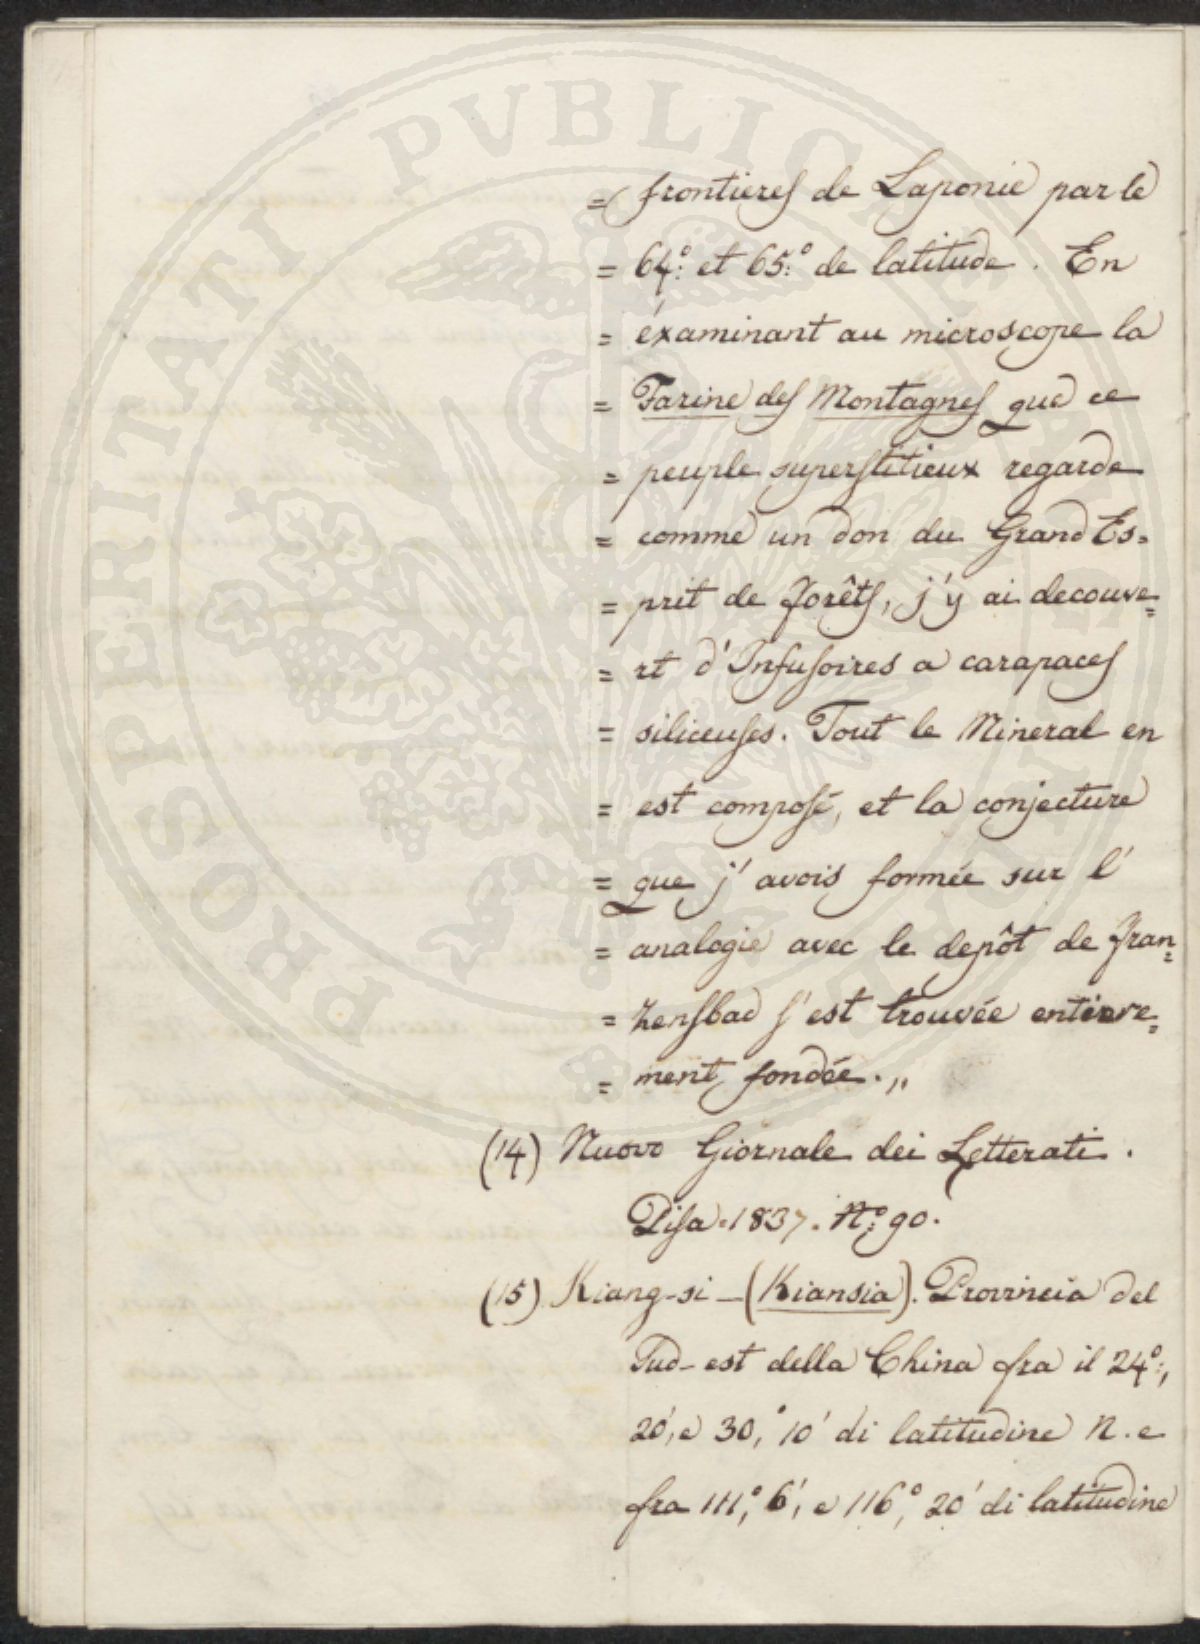 = frontieres de Laponie par le
= 64.° et 65.° de latitude. En
= éxaminant au microscope la
= Farine des Montagnes que ce
= peuple superstitieux regarde
= comme un don du Grand Es=
= prit de forêts, j'y ai decouve=
= rt d'Infusoires a carapaces
= siliceuses. Tout le Mineral en
= est composé, et la conjecture
= que j'avois formée sur l'
= analogie avec le depôt de Fran=
= zensbad s'est trouvée entiere=
= ment fondée.„
(14) Nuovo Giornale dei Letterati.
Pisa. 1837. N.° 90.
(15) Kiang-si — (Kiansia). Provincia del
Sud-est della China fra il 24.°,
20', e 30,° 10' di latitudine N. e
fra 111,° 6', e 116,° 20' di latitudine
PROSPERITATI PVBLICAE AVGENDAE